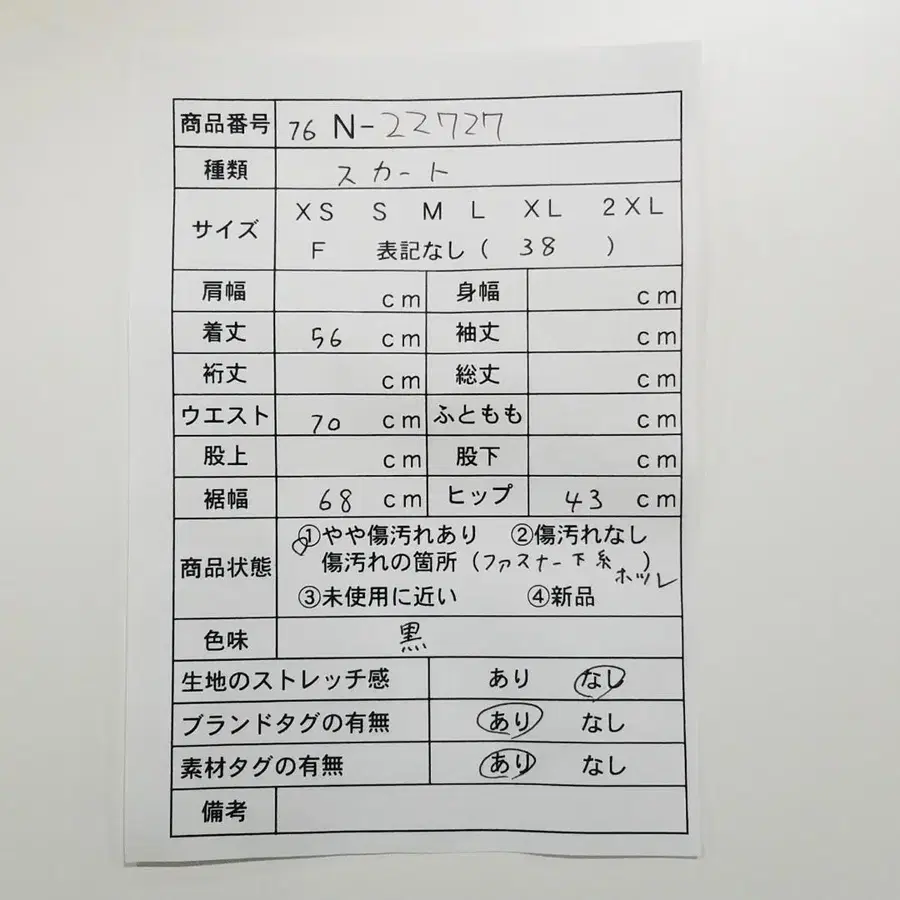 商品番号 76 N-22727
種類 スカート
サイズ XS S M L XL 2XL
F 表記なし( 38 )
肩幅 cm 身幅 cm
着丈 56 cm 袖丈 cm
裄丈 cm 総丈 cm
ウエスト 70 cm ふともも cm
股上 cm 股下 cm
裾幅 68 cm ヒップ 43 cm
商品状態 ①やや傷汚れあり ②傷汚れなし
傷汚れの箇所(ファスナー下糸ホツレ)
③未使用に近い ④新品
色味 黒
生地のストレッチ感 あり なし
ブランドタグの有無 あり なし
素材タグの有無 あり なし
備考